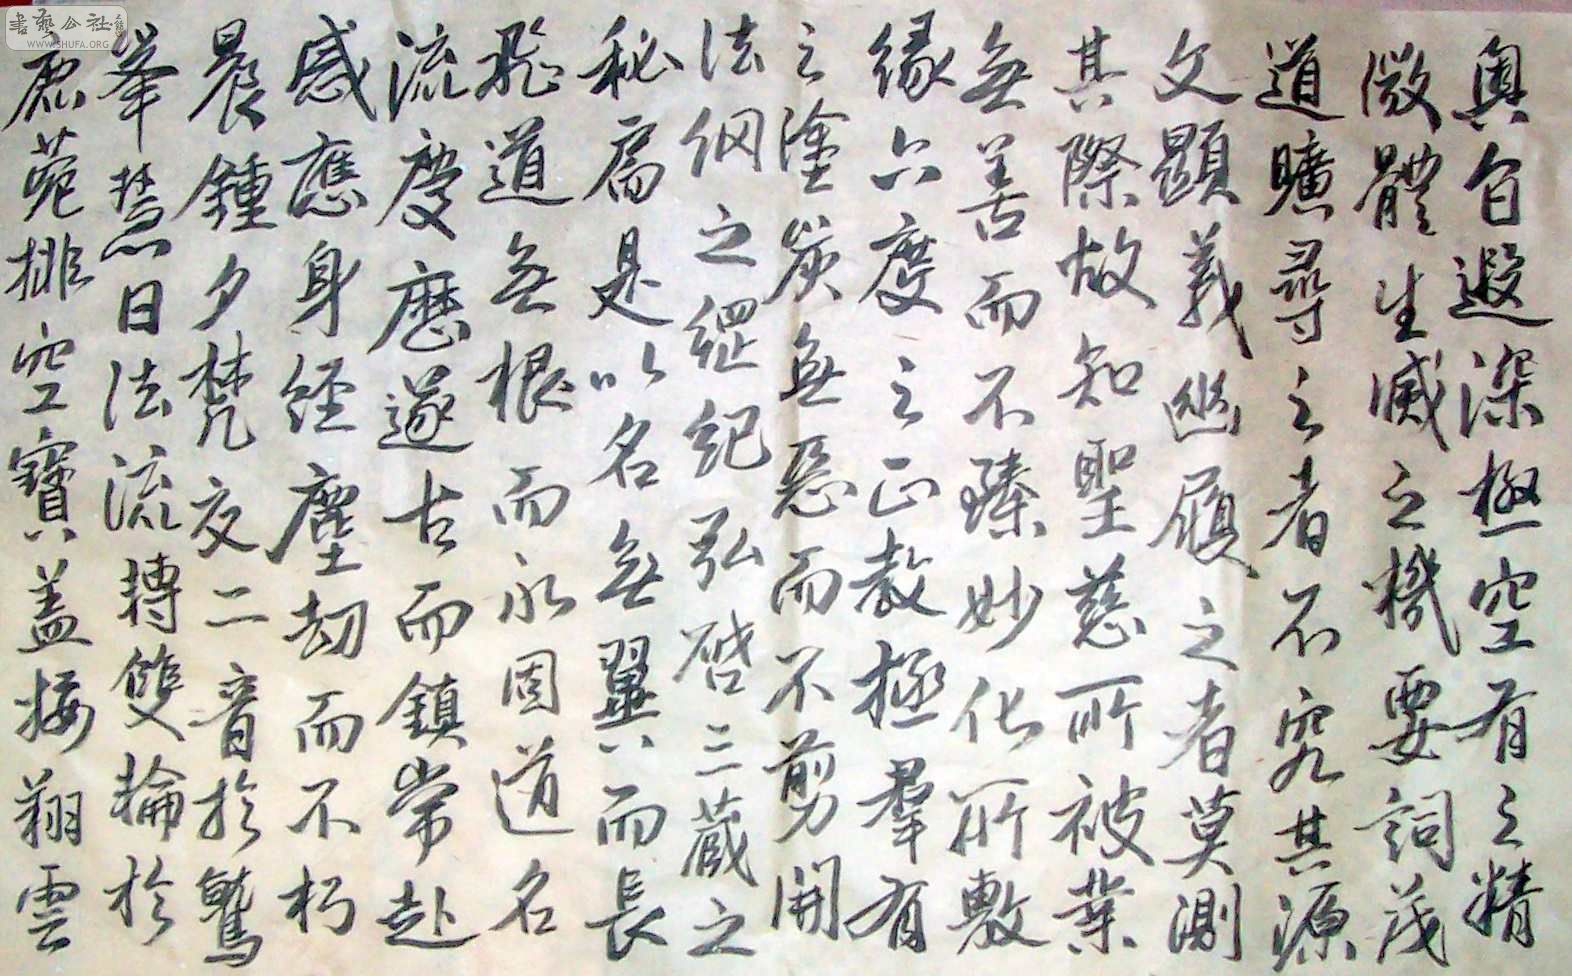 奧自遐深極空有之精
微體生滅之機要詞茂
道曠尋之者不究其源
文顯義幽履之者莫測
其際故知聖慈所被業
無善而不臻妙化所敷
緣六度之正教極群有
之塗炭無惡而不剪開
法網之綱紀弘啓三藏之
秘扃是以名無翼而長
飛道無根而永固道名
流慶歷遂古而鎮常赴
感應身經塵劫而不朽
晨鍾夕梵交二音於鷲
峯慧日法流轉雙輪於
鹿菀排空寶盖接翔雲
書藝公社
WWW.SHUFA.ORG